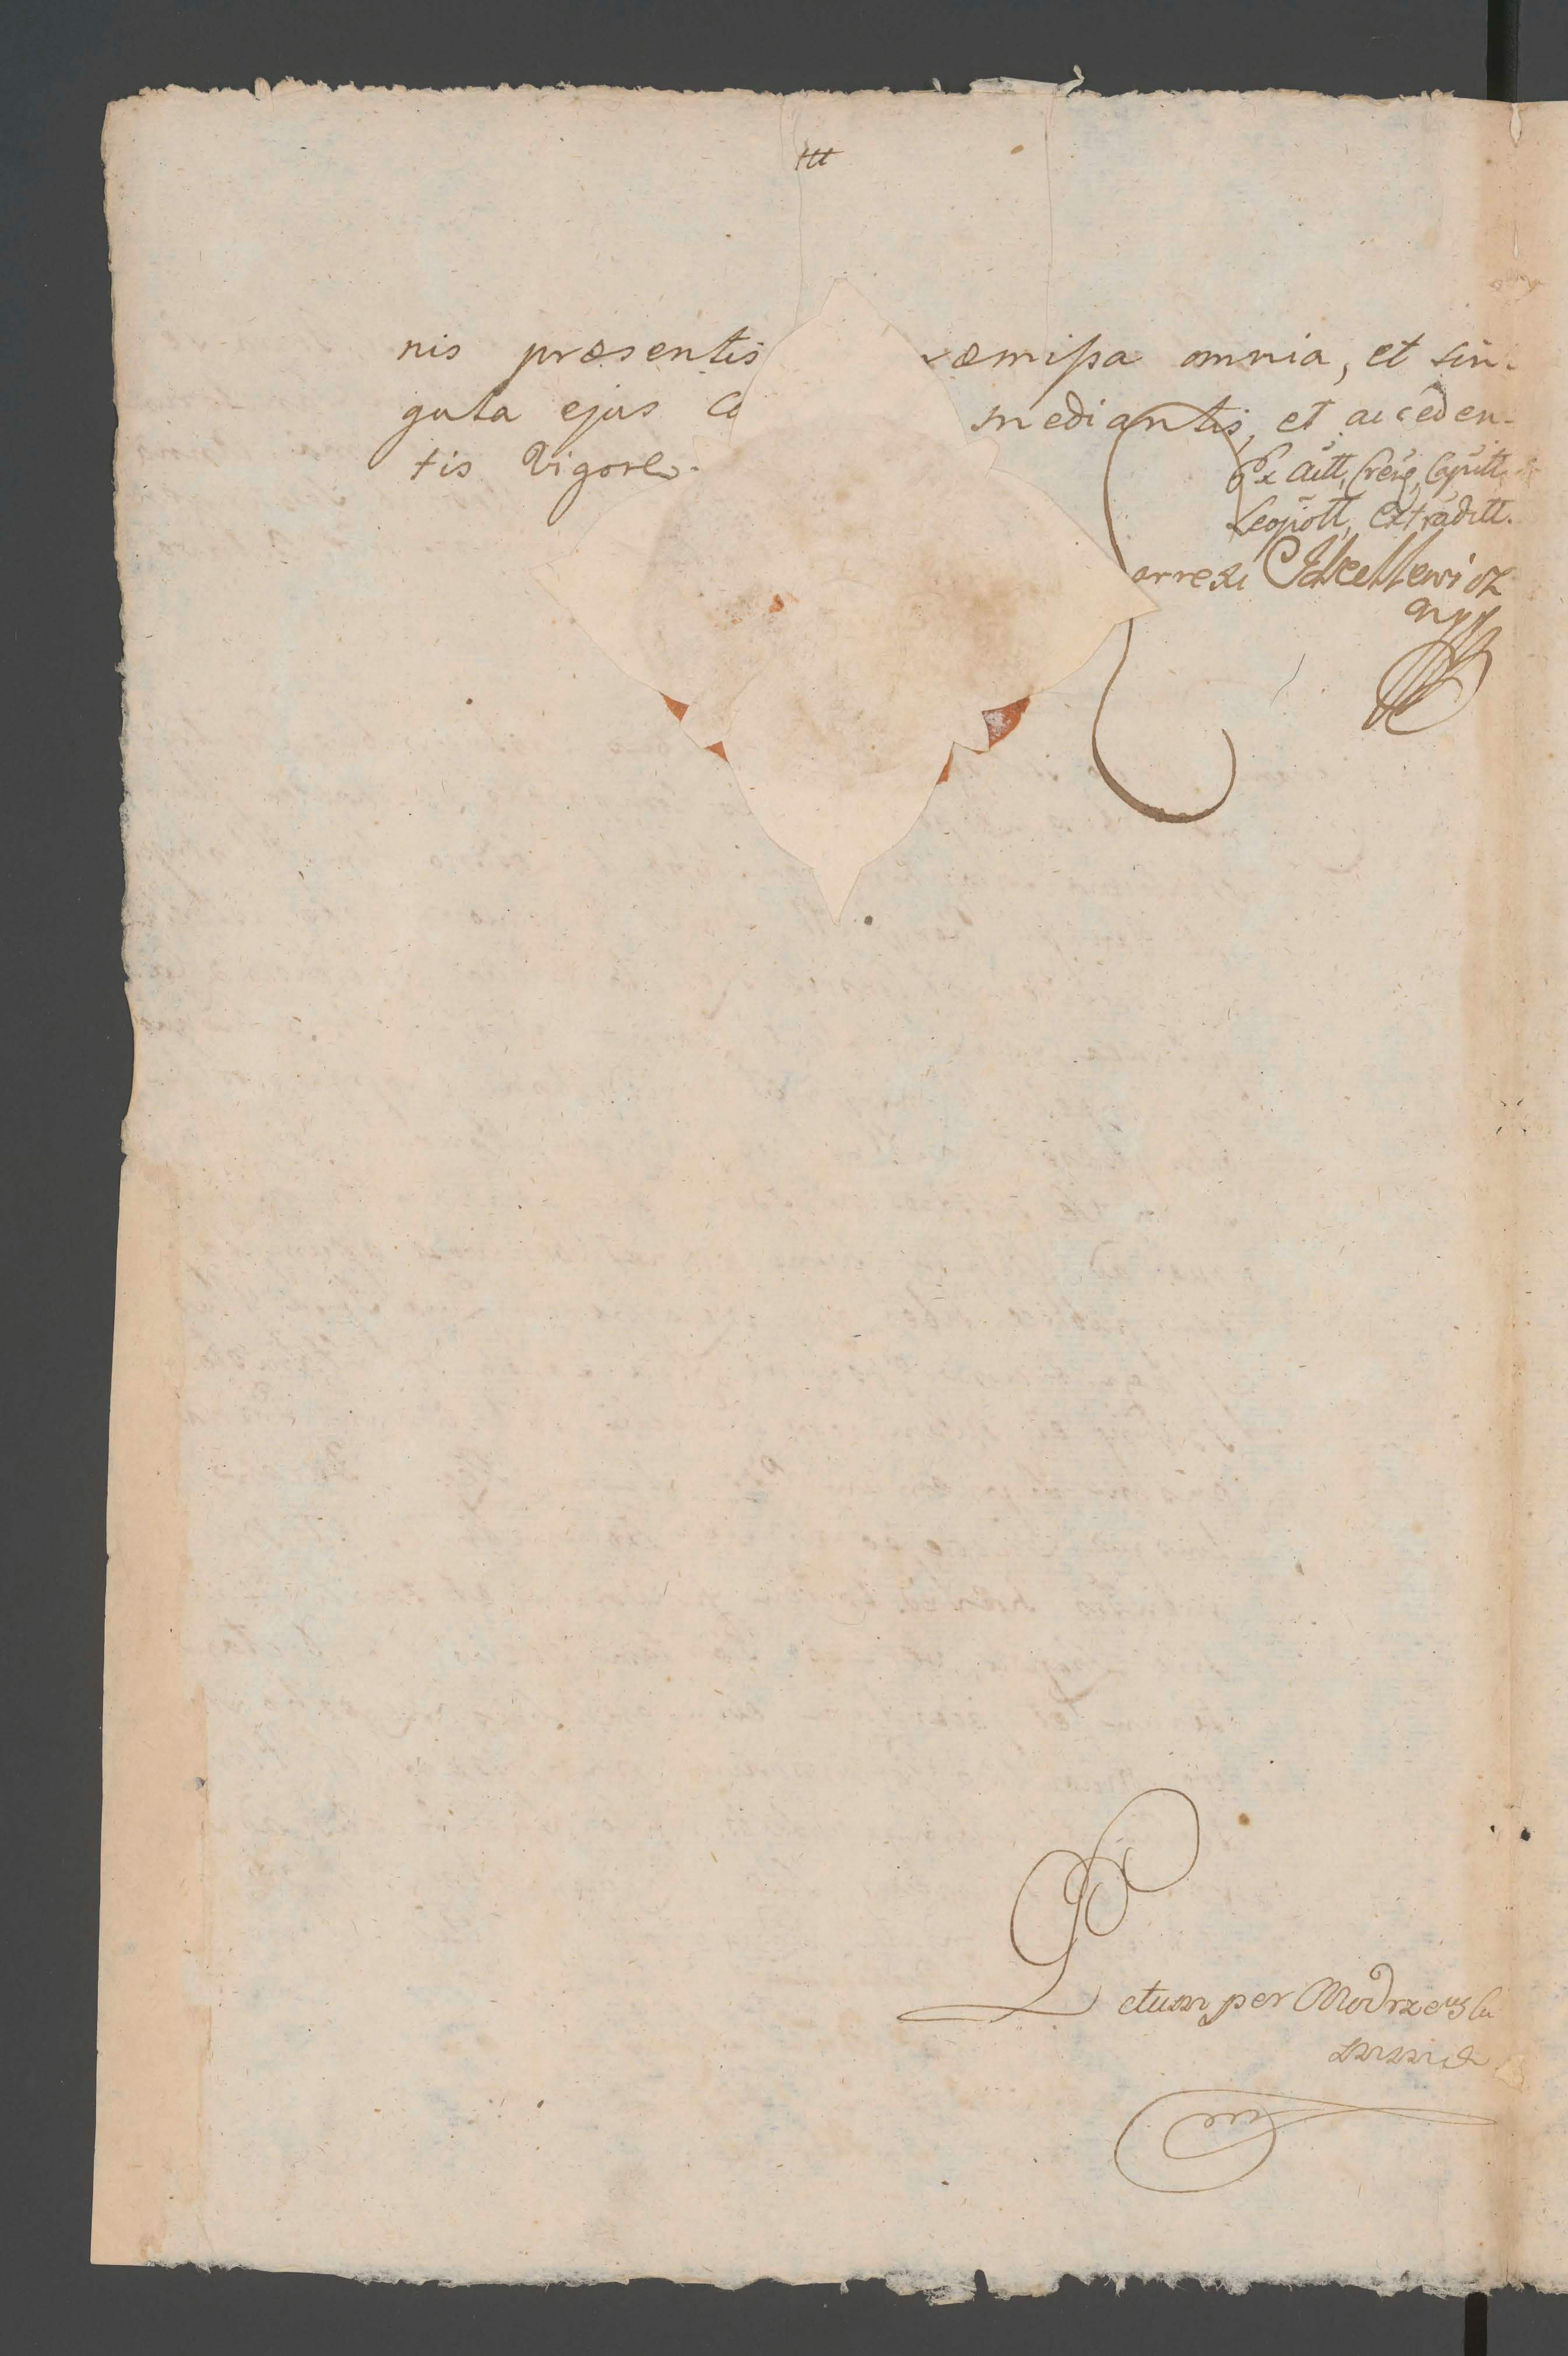 nis præsentis ræmissa omnia, et sin-
gula ejus Co mediantis, et acceden-
tis Vigore.
Ex Actt, Creg, Capitt,
Leopoll, Extraditt.
orrexi
Lectum per Modrzewski